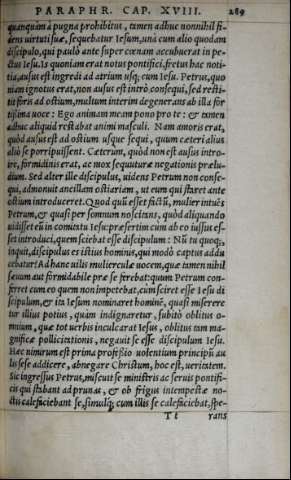 PARAPHR. CAP. XVIII. 289
quanquàm à pugna prohibitus, tamen adhuc nonnihil fi-
dens uirtuti suæ, sequebatur Iesum, unà cum alio quodam
discipulo, qui paulò ante super cœnam accubuerat in pe-
ctus Iesu. Is quoniam erat notus pontifici, fretus hac noti-
tia, ausus est ingredi ad atrium usq; cum Iesu. Petrus, quo
niam ignotus erat, non ausus est intrò consequi, sed resti-
tit foris ad ostium, multum interim degenerans ab illa for
tissima uoce: Ego animam meam pono pro te: & tamen
adhuc aliquid restabat animi masculi. Nam amoris erat,
quòd ausus est ad ostium usque sequi, quum cæteri aliùs
aliò se porripuissent. Cæterum, quòd non est ausus intro-
ire, formidinis erat, ac mox sequuturæ negationis prælu-
dium. Sed alter ille discipulus, uidens Petrum non conse-
qui, admonuit ancillam ostiariam, ut eum qui staret ante
ostium introduceret. Quod quũ esset factũ, mulier intuẽs
Petrum, & quasi per somnum noscitans, quòd aliquando
uidisset eũ in comitatu Iesu: præsertim cum ab eo iussus es-
set introduci, quem sciebat esse discipulum: Nũ tu quoq;,
inquit, discipulus es istius hominis, qui modò captus addu
cebatur? Ad hanc uilis mulierculæ uocem, quæ tamen nihil
sæuum aut formidabile præ se ferebat: quum Petrum con-
ferret cum eo quem non impetebat, cum sciret esse Iesu di
scipulum, & ita Iesum nominaret hominẽ, quasi miserere
tur illius potius, quàm indignaretur, subitò oblitus o-
mnium, quæ tot uerbis inculcarat Iesus, oblitus tam ma-
gnificæ pollicitationis, negauit se esse discipulum Iesu.
Hæc nimirum est prima professio uolentium principũ au
lis sese addicere, abnegare Christum, hoc est, ueritatem.
Sic ingressus Petrus, miscuit se ministris ac seruis pontifi-
cis qui stabant ad prunas, & ob frigus intempestæ no-
ctis calefaciebant se, simulq; cum illis se calefaciebat, spe-
T t rans